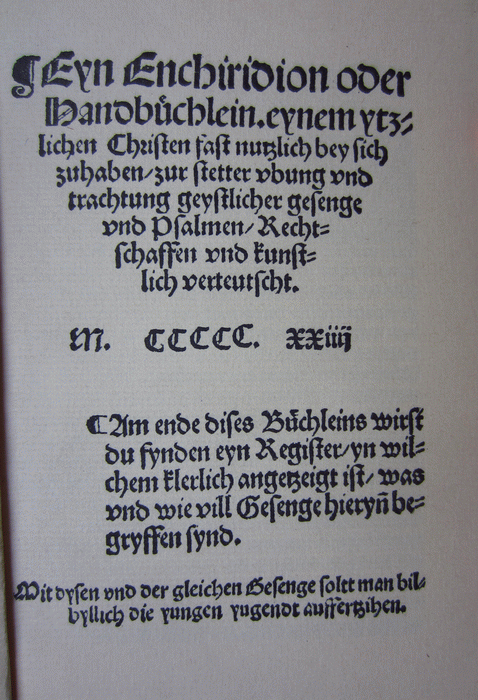 ¶Eyn Enchiridion oder
Handbüchlein. eynem ytz⸗
lichen Christen fast nutzlich bey sich
zuhaben/ zur stetter vbung vnd
trachtung geystlicher gesenge
vnd Psalmen/ Recht⸗
schaffen vnd kunst⸗
lich verteutscht.
M. CCCCC. XXiiij
¶Am ende dises Büchleins wirst
du fynden eyn Register/ yn wil⸗
chem klerlich angetzeigt ist/ was
vnd wie vill Gesenge hieryñ be⸗
gryffen synd.
Mit dysen vnd der gleichen Gesenge soltt man bil⸗
byllich die yungen yugendt auffertzihen.